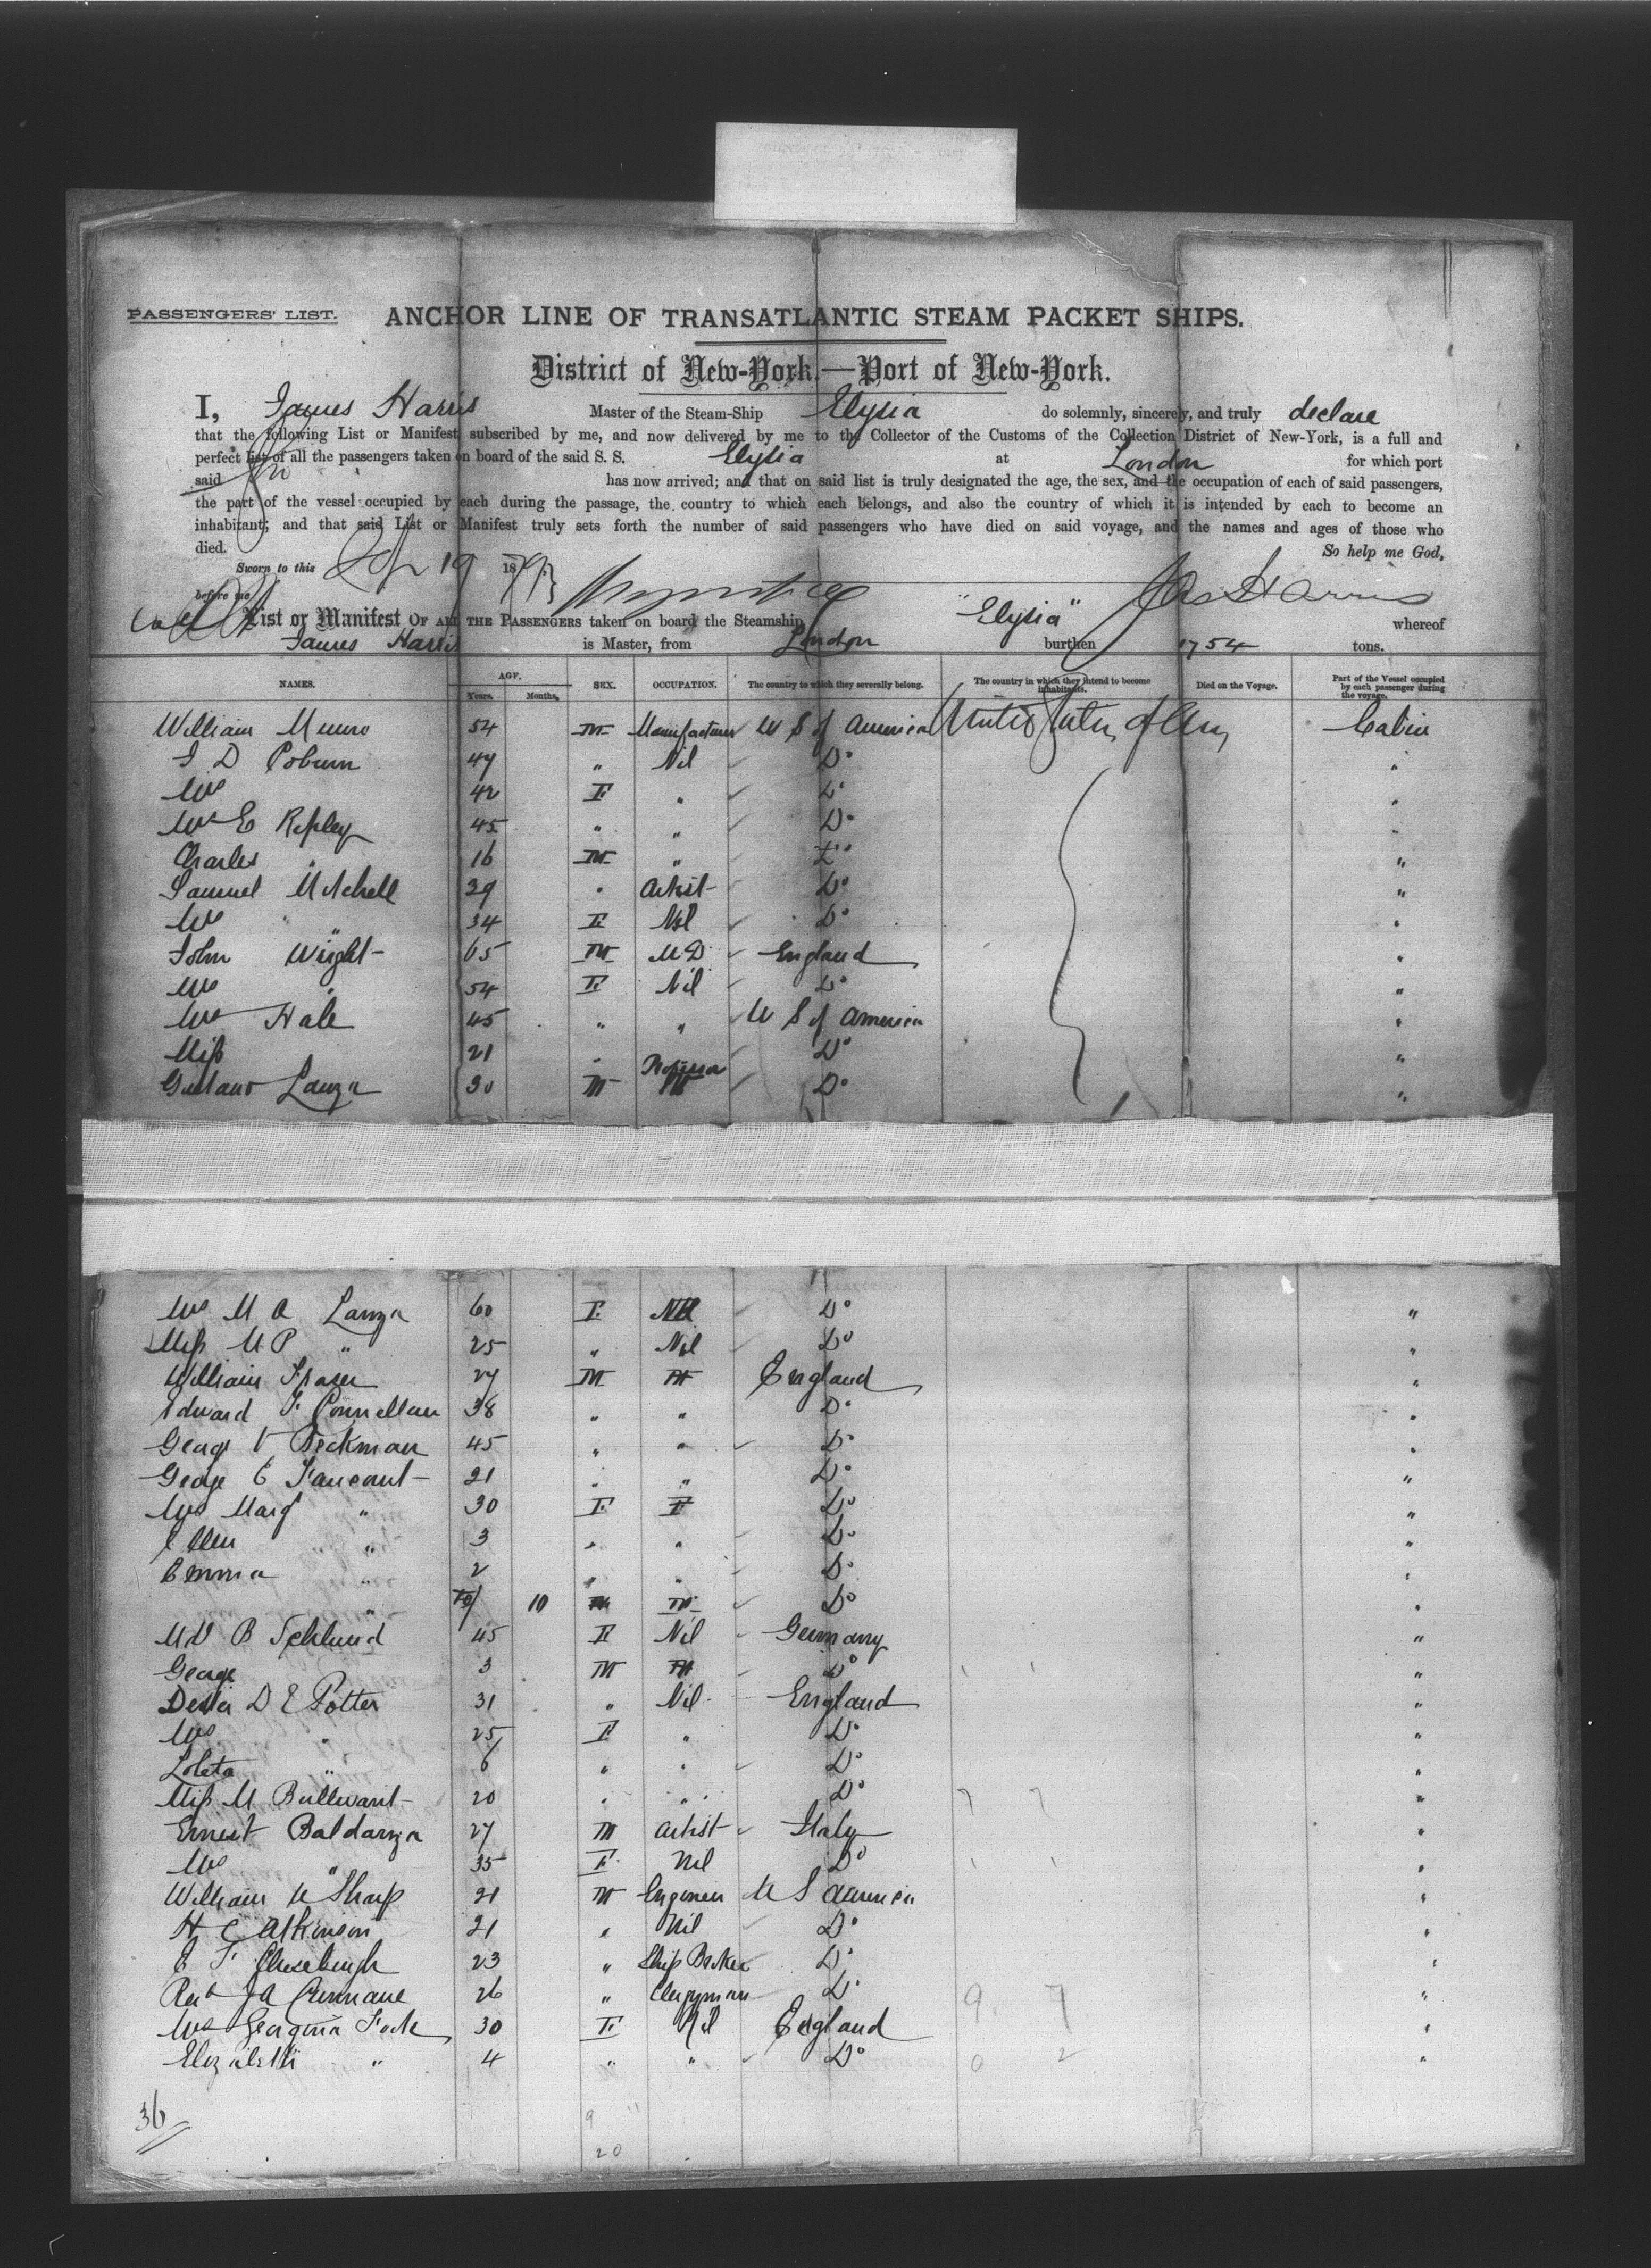 PASSENGERS' LIST. ANCHOR LINE OF TRANSATLANTIC STEAM PACKET SHIPS.
District of New-York.—Port of New-York.
I, James Harris Master of the Steam-Ship Elysia do solemnly, sincerely, and truly declare
that the following List or Manifest subscribed by me, and now delivered by me to the Collector of the Customs of the Collection District of New-York, is a full and
perfect list of all the passengers taken on board of the said S. S. Elysia at London for which port
said has now arrived; and that on said list is truly designated the age, the sex, and the occupation of each of said passengers,
the part of the vessel occupied by each during the passage, the country to which each belongs, and also the country of which it is intended by each to become an
inhabitant; and that said List or Manifest truly sets forth the number of said passengers who have died on said voyage, and the names and ages of those who
died. So help me God,
Sworn to this 19 18 Jas Harris
before me
List or Manifest OF ALL THE PASSENGERS taken on board the Steamship "Elysia" whereof
James Harris is Master, from London burthen 1754 tons.
NAMES. AGE. Years. Months. SEX. OCCUPATION. The country to which they severally belong. The country in which they intend to become inhabitants. Died on the Voyage. Part of the Vessel occupied by each passenger during the voyage.
William Munro 54 M Manufacturer U S of America United States of Am Cabin
J D 47 " Nil Do "
Mrs 42 F " Do "
Mrs E Ripley 45 " " Do "
Charles " 16 M " Do "
Samuel Mitchell 39 " Artist Do "
Mrs " 34 F Nil Do "
John Wright 65 M M D England "
Mrs " 54 F Nil Do "
Mrs Hale 45 " " U S of America "
Miss 21 " Do "
Lanza 30 M Do "
Mrs M A Lanza 60 F Nil Do "
Miss M P " 25 " Nil Do "
William Fraser 27 M England "
Edward F Connellan 38 " " Do "
George V Beckman 45 " " Do "
George E 21 " " Do "
Mrs Marg " 30 F Do "
Ellen " 3 " " Do "
Emma " 2 " " Do "
" 10 Do "
B 45 F Nil Germany "
George 3 M Do "
D E Potter 31 " Nil England "
Mrs " 25 F " Do "
Loleta " 6 " " Do "
Miss M 20 " " Do "
Ernest Baldanza 27 M Artist Italy "
Mrs " 35 F Nil Do "
William Sharp 21 M Engineer U S America "
H C Atkinson 21 " Nil Do "
E F 23 " Ship Broker Do "
J A 26 " Clergyman Do "
Mrs Georgina 30 F Nil England "
Elizabeth " 4 " " Do "
36
9
20